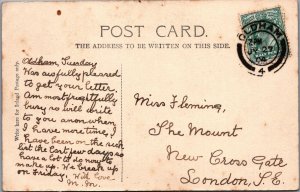 POST CARD.
THE ADDRESS TO BE WRITTEN ON THIS SIDE.
Oldham, Tuesday
Was awfully pleased
to get your letter.
Am most frightfully
busy so will write
to you anon when
I have more time, I
have been on the sick
list the last few days so
have a lot to do now to
make up. We break up
on Friday. With love
Miss Fleming,
The Mount
New Cross Gate
London, S.E.
OLDHAM
4